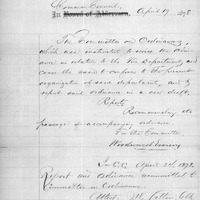 Common Council,
In Board of Aldermen. April 19, 1898
The Committee on Ordinances,
which was instructed to revise the Ordin-
ance in relation to the Fire Department, and
cause the same to conform to the present
organization of said department, and to
report said ordinance in a new draft.
Report
Recommending the
passage of accompanying ordinance.
For the Committee
In C.C. April 1892.
Report and ordinance recommitted to
Committee on Ordinances.
Attest,